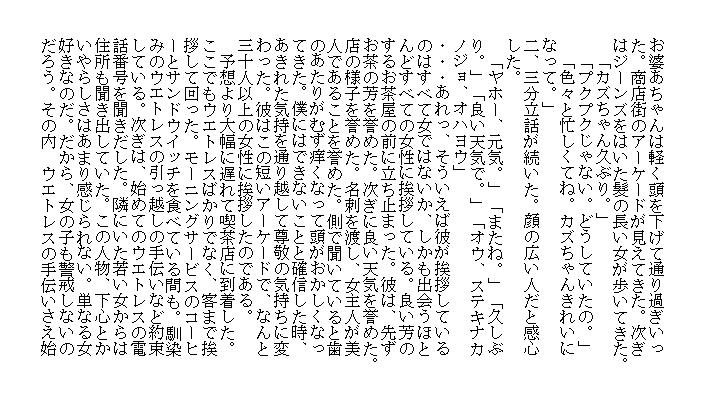 お婆あちゃんは軽く頭を下げて通り過ぎいっ
た。商店街のアーケードが見えてきた。次ぎ
はジーンズをはいた髪の長い女が歩いてきた。
「カズちゃん久ぶり。」
「プクプクじゃない。どうしていたの。」
「色々と忙しくてね。カズちゃんきれいに
なって。」
二、三分立話が続いた。顔の広い人だと感心
した。
「ヤホー、元気。」「またね。」「久しぶ
り。」「良い天気で。」「オウ、ステキナカ
ノジョ、オハヨウ」
・・・あれっ、そういえば彼が挨拶している
のはすべて女ではないか、しかも出会うほと
んどすべての女性に挨拶している。良い芳の
するお茶屋の前に立ち止まった。彼は、先ず
お茶の芳を誉めた。次ぎに良い天気を誉めた。
店の様子を誉めた。名刺を渡し、女主人が美
人であることを誉めた。側で聞いていると歯
のあたりがむず痒くなって頭がおかしくなっ
てきた。僕にはできないことと確信した時、
あきれた気持を通り越して尊敬の気持ちに変
わった。彼はこの短いアーケードで、なんと
三十人以上の女性に挨拶したのである。
予想より大幅に遅れて喫茶店に到着した。
ここでもウエトレスばかりでなく、客まで挨
拶して回った。モーニングサービスのコーヒ
ーとサンドウイッチを食べている間も、馴染
みのウエトレスの引っ越しの手伝いなど約束
している。次ぎは、始めてのウエトレスの電
話番号を聞きだした。隣にいた若い女からは
住所も聞き出していた。この人物、下心とか
いやらしさはあまり感じられない。単なる女
好きなのだ。だから、女の子も警戒しないの
だろう。その内　ウエトレスの手伝いさえ始